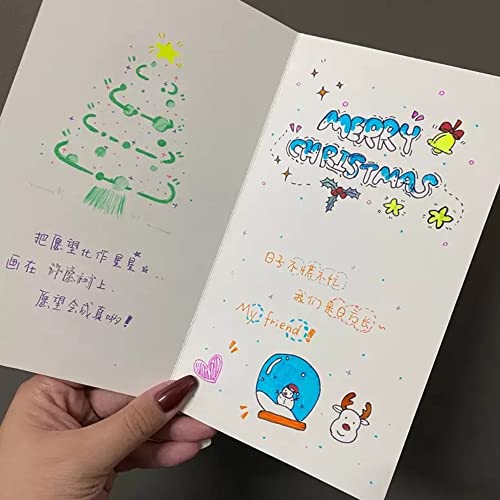 把愿望化作星星
画在许愿树上
愿望会成真哟！
MERRY
CHRISTMAS
日子不慌不忙
My friend!